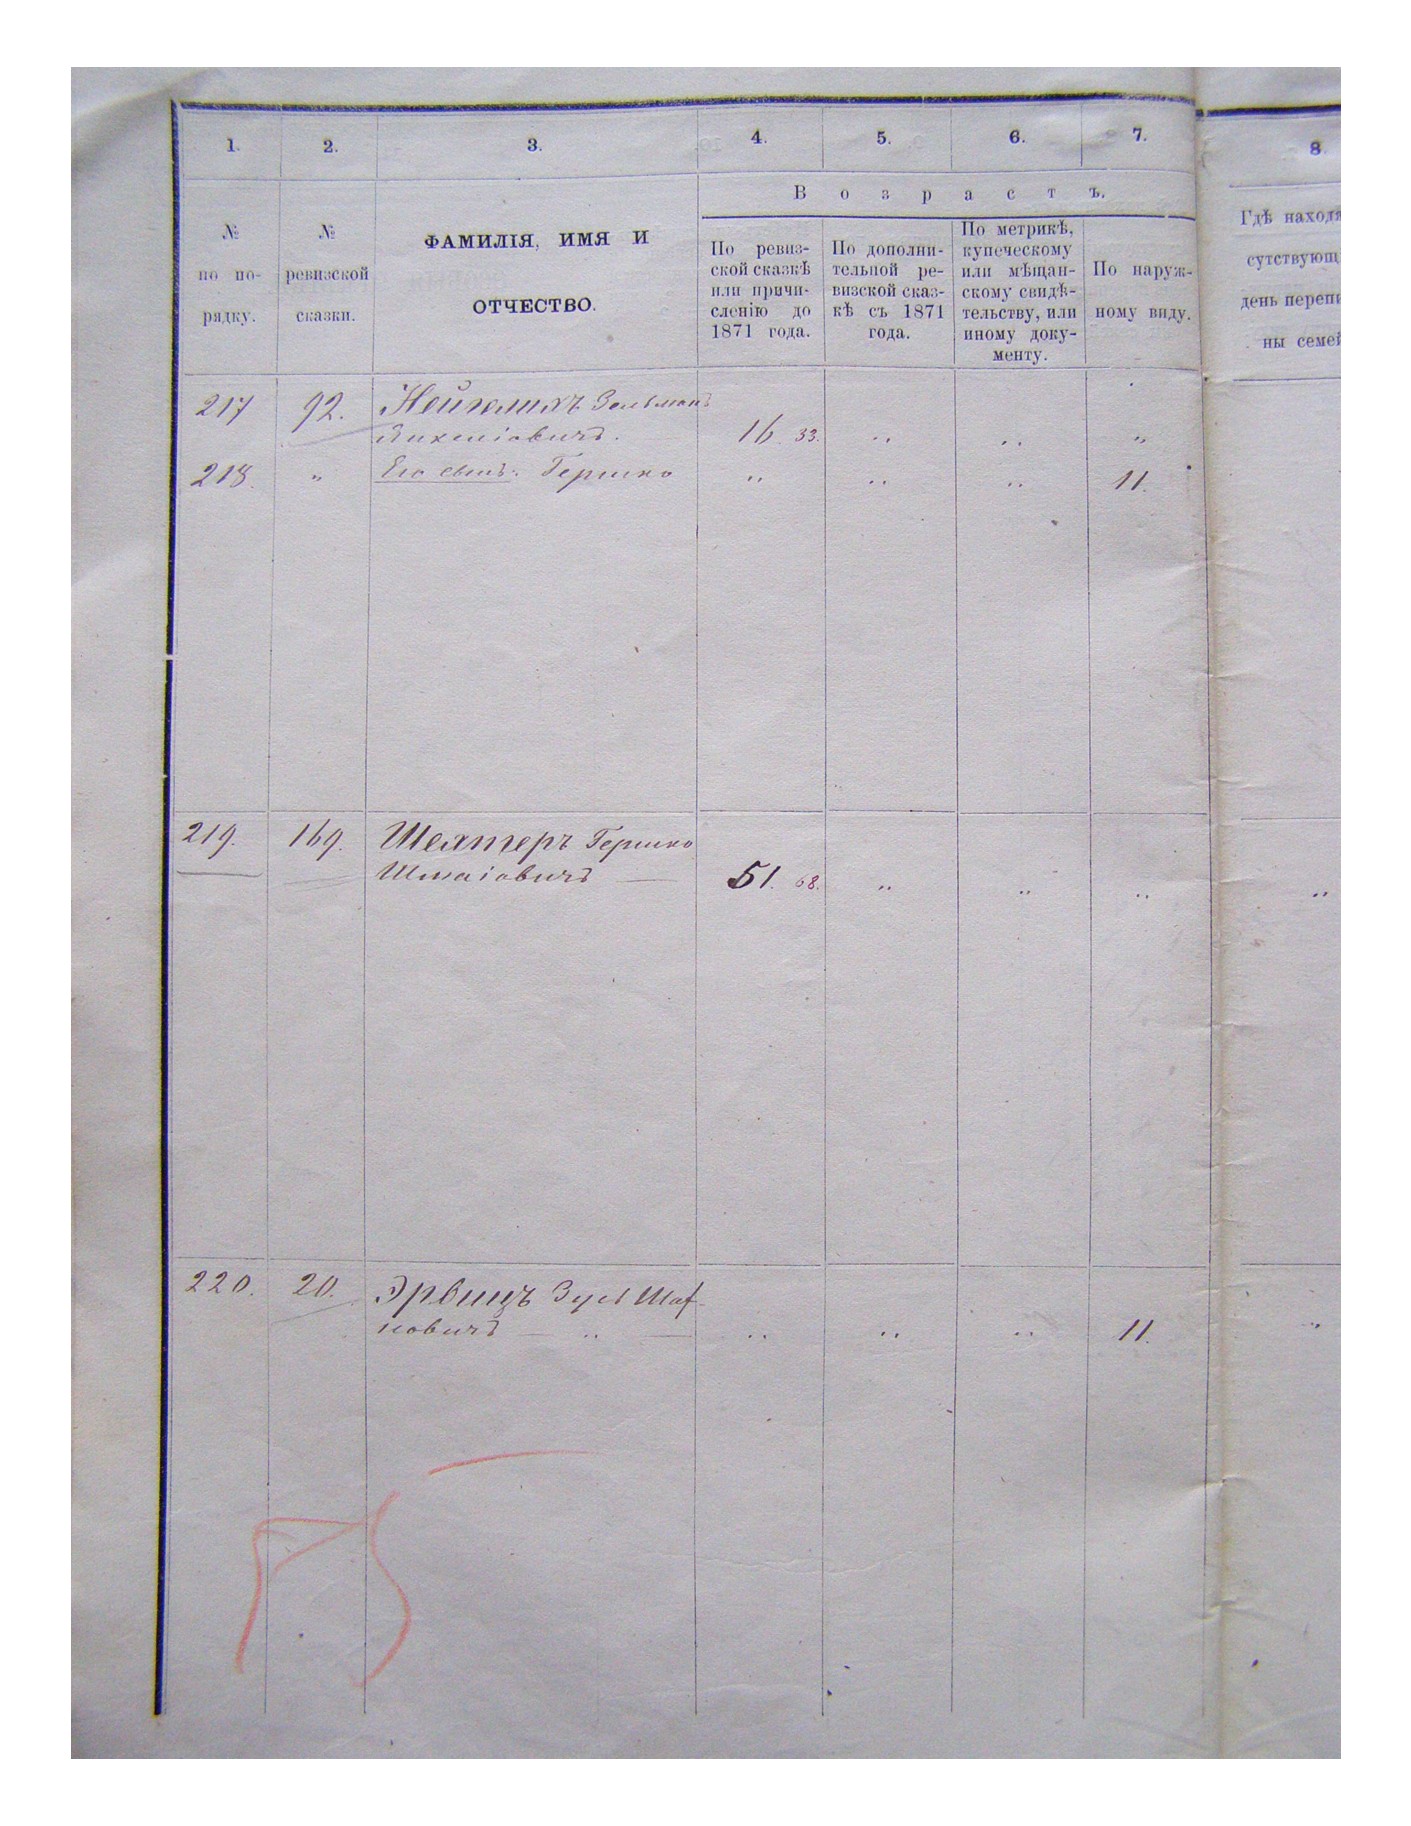 1. 2. 3. 4. 5. 6. 7. 8.
Возрастъ.
№ по по-
рядку.
№
ревизской
сказки.
ФАМИЛІЯ, ИМЯ И
ОТЧЕСТВО.
По ревиз-
ской сказкѣ
или причи-
сленію до
1871 года.
По дополни-
тельной ре-
визской сказ-
кѣ съ 1871
года.
По метрикѣ,
купеческому
или мѣщан-
скому свидѣ-
тельству, или
иному доку-
менту.
По наруж-
ному виду.
Гдѣ находя
сутствующ
день переп
ны семе
217 92. Зельманъ
16 33. " " "
218. " Его сынъ: Гершко " " " 11.
219. 169. Шехтеръ Гершко
Шмаіовичъ — 51. 68. " " " "
220. 20. Эрвицъ Зусь
новичъ — " — " " " 11. "